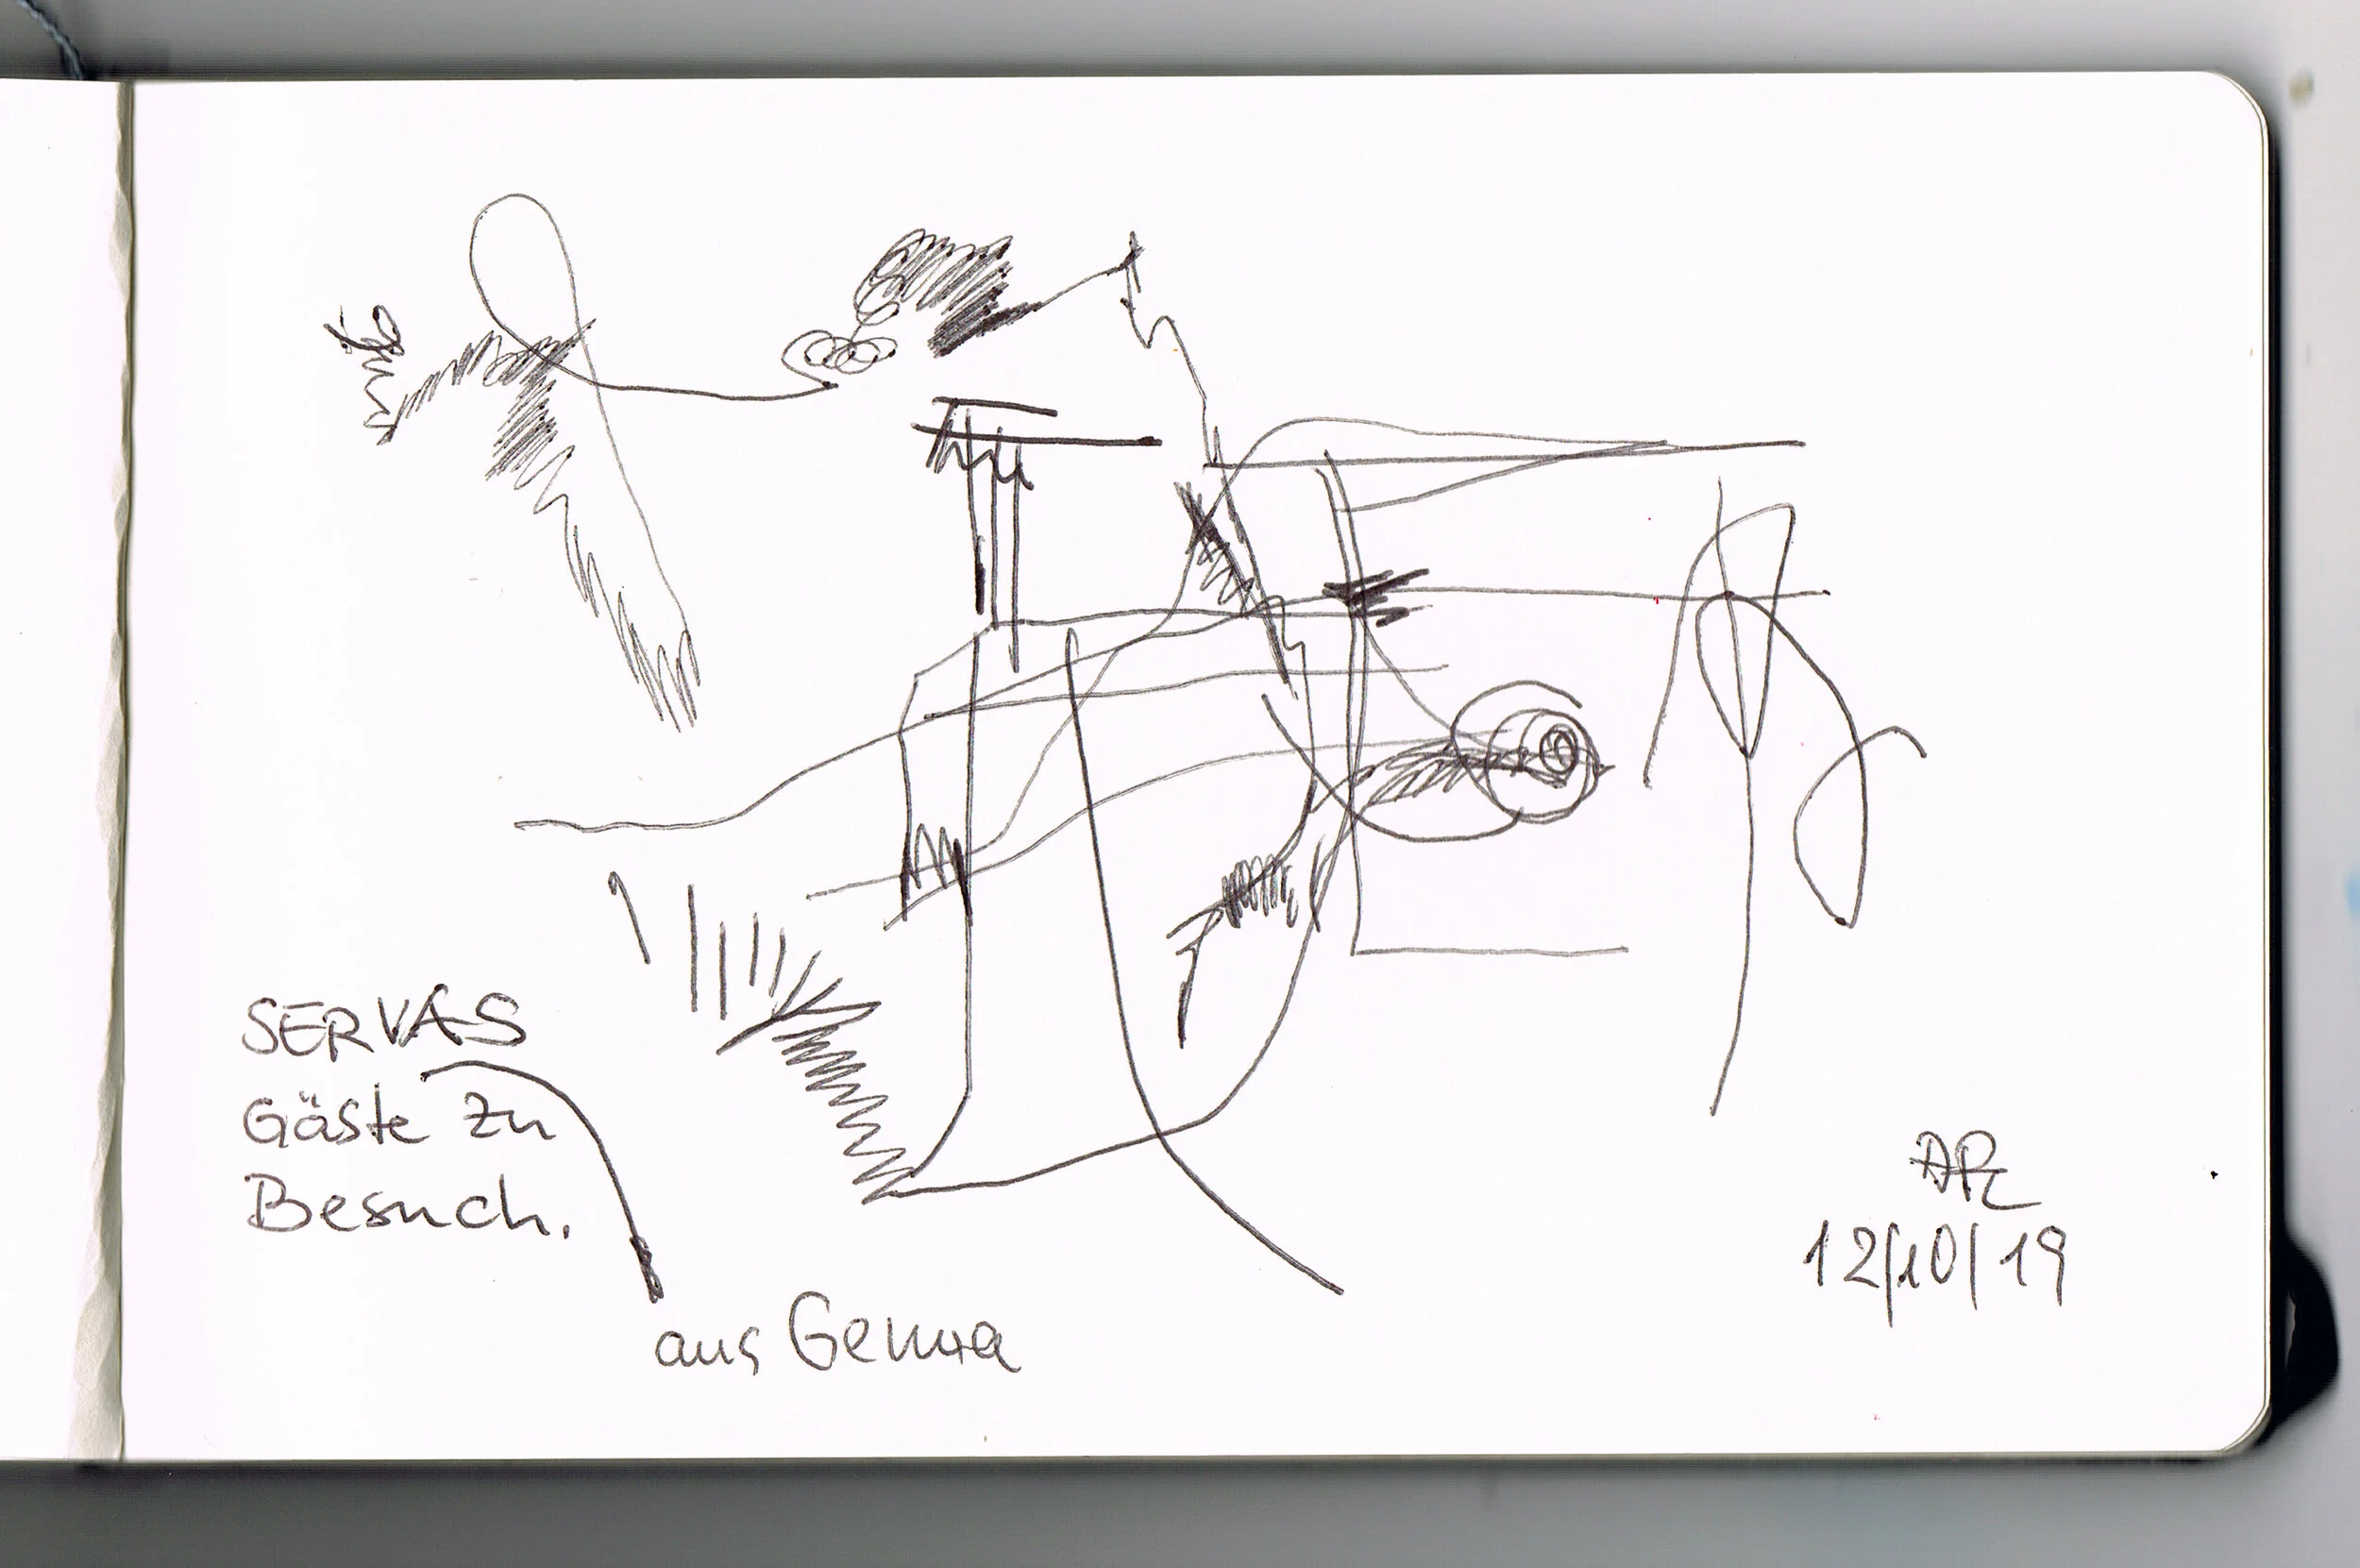 SERVAS
Gäste zu
Besuch.
aus Genua
APL
12/10/19